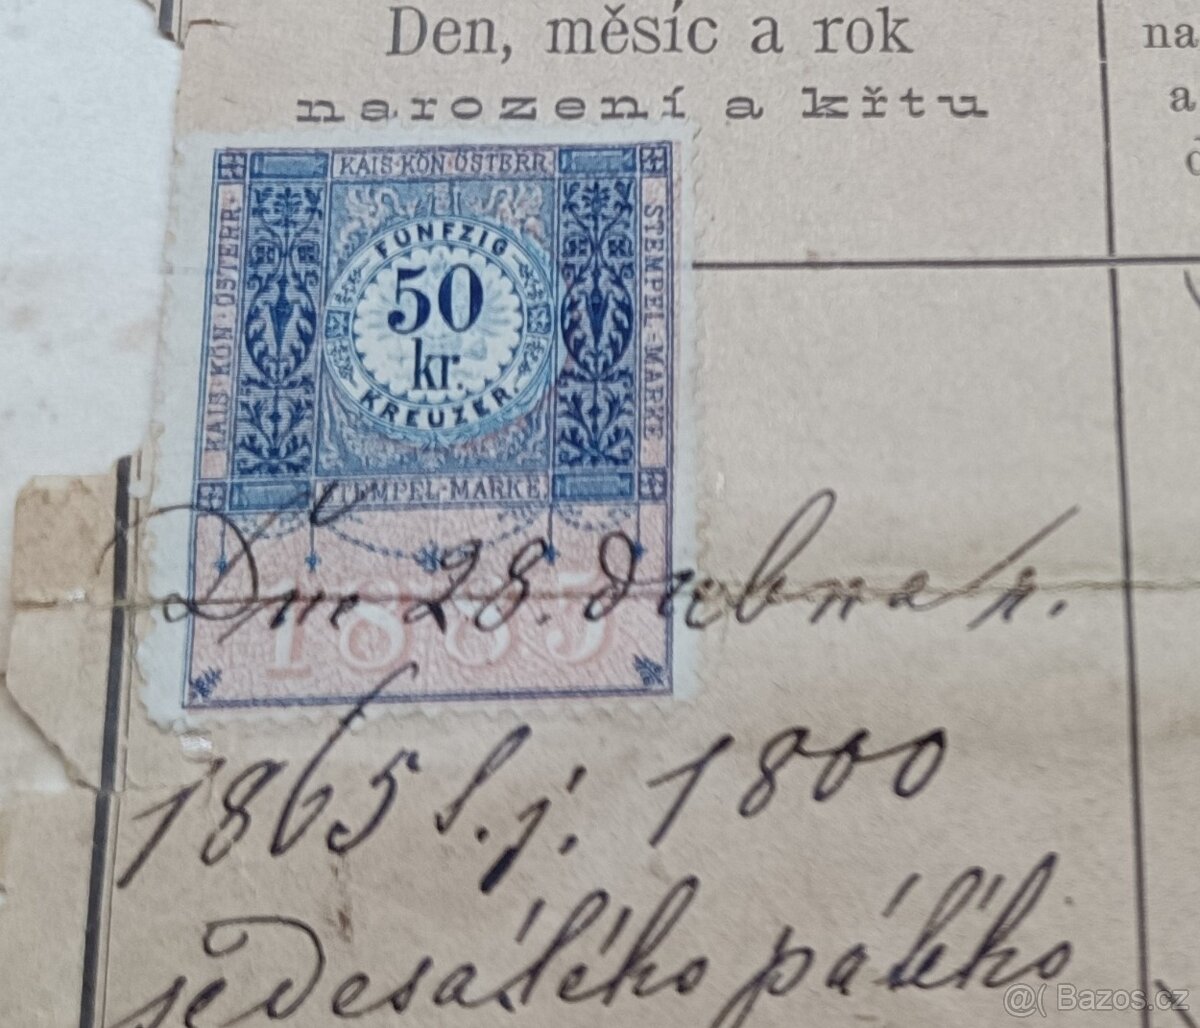 Den, měsíc a rok
narození a křtu
na
a
KAIS·KÖN·ÖSTERR·
KAIS·KÖN·ÖSTERR·
STEMPEL-MARKE
FÜNFZIG
50
kr.
KREUZER
STEMPEL-MARKE
1885
Dne 28. dubna /r.
1865 t.j. 1800
šedesátého pátého
@( Bazos.cz